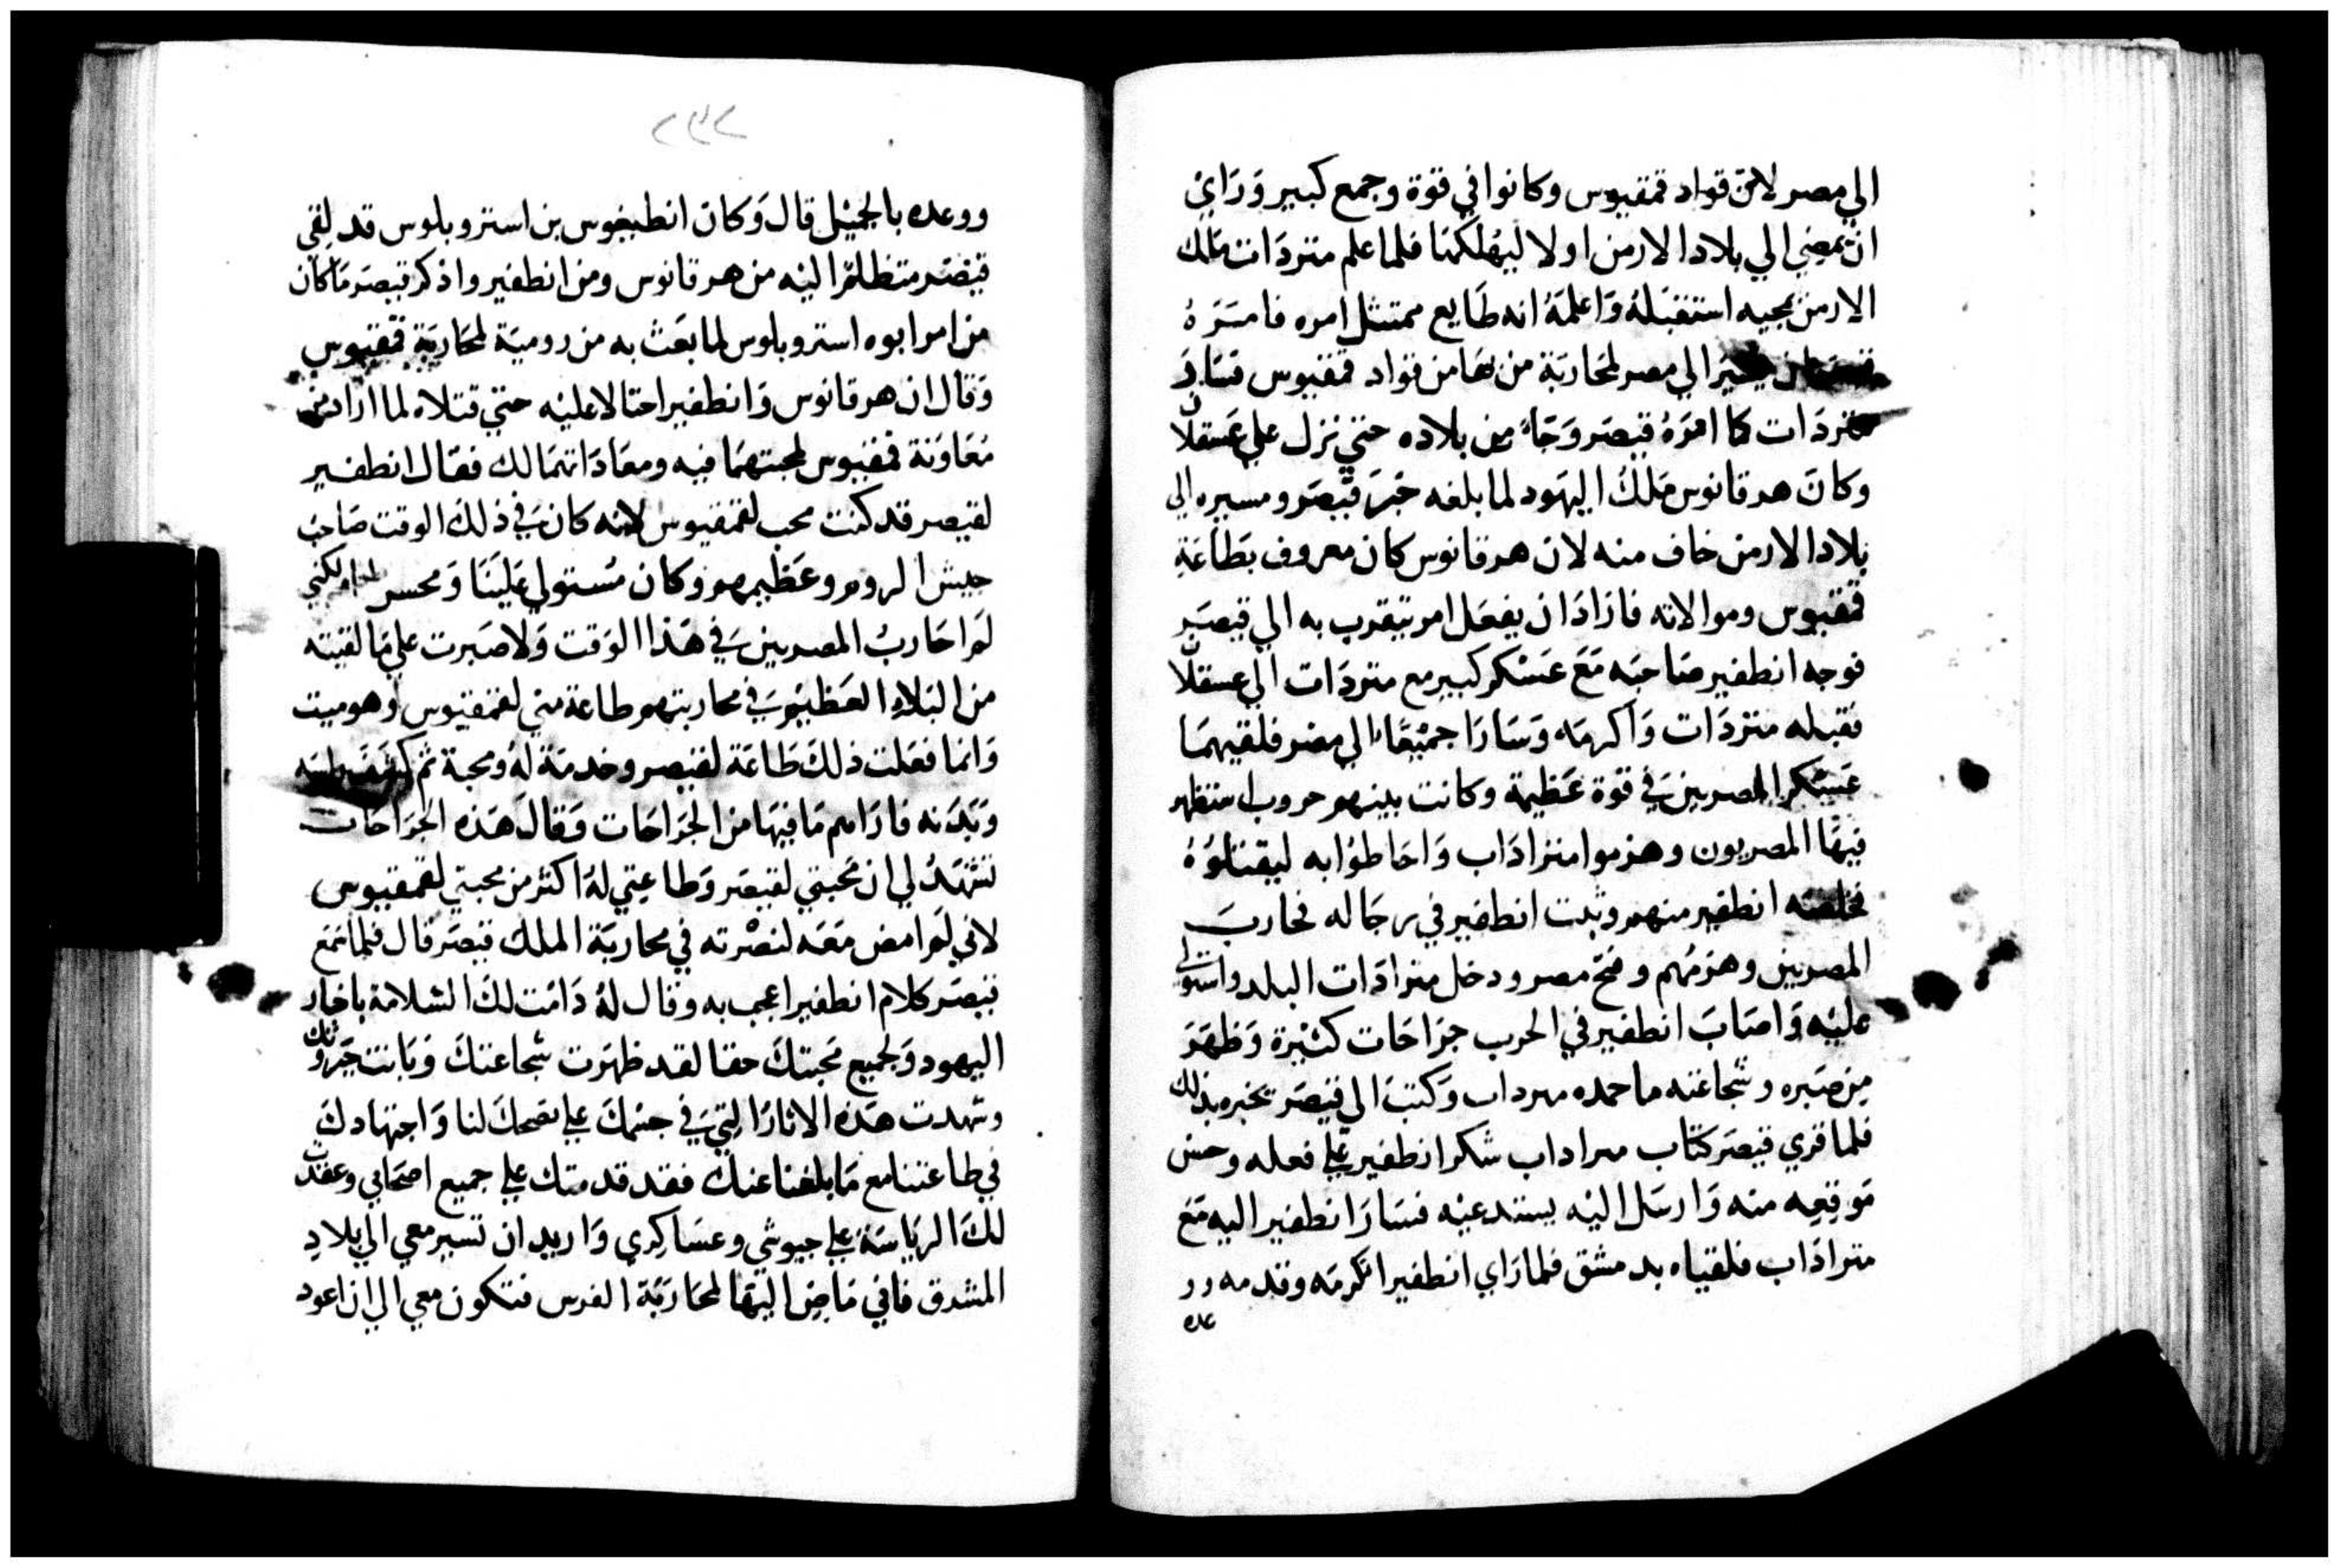 الي مصر لان قواد قمقيوس وكانوا في قوة وجمع كبير وَرَايَ
ان يمضي الي بلاد الارمن اولا ليهلكها فلما علم متردَات ملك
الارمن بمجيه استقبَلهُ وَاعلمَهُ انه طَايع ممتثل امره فامَرَهُ
الي مصر لمحَاربَة من بهَا من قواد قمقيوس فسَارَ
متردَات كما امرَهُ قيصَر وَجَاءَ من بلاده حتي نزل علي عَسقلان
وكانَ هرقانوس مَلكُ اليهَود لما بلغه خبرَ قيصَر ومسيره الي
بلاد الارمن خاف منه لان هرقانوس كان معروف بطَاعَةِ
قمقيوس وموالاته فارَادَ ان يفعَل امر يتقرب به الي قيصَر
فوجه انطفير صَاحبَه مَعَ عَسْكر كبير مع متردَات الي عسقلان
فقبله متردَات وَاكرمَه وَسَارَا جميْعًا الي مصر فلقيهمَا
عَسْكر المصريين في قوة عَظيمة وكانت بينهم حروب استظهر
فيهَا المصريون وهزموا متراداب وَاحَاطوُا به ليقتلوُهُ
فخلصَه انطفير منهم وثبت انطفير في رجَاله فحاربَ
المصريين وهزمُهم وفتح مصر ودخل مترادَات البلد واستولي
عليْه وَاصَابَ انطفير في الحرب جرَاحَات كثيْرة وَظهَرَ
من صَبره وشجاعته ما حمده مرداب وَكتبَ الي قيصَر يخبره بذلك
فلما قري قيصَر كتَاب مراداب شكر انطفير علي فعله وحسن
مَوقعِه منه وَارسَل اليْه يستدعيْه فسَارَ انطفير اليه مَعَ
متراداب فلقياه بدمشق فلما رَاي انطفير اكرمَه وقدمه وو
عده
٢٣٢
ووعده بالجميْل قال وَكان انطيغوس بن استروبلوس قد لِقي
قيْصَر متظلمًا اليْه من هرقانوس ومن انطفير واذكر قيصَر مَا كان
من امر ابوه استروبلوس لما بعَث به من روميَة لمحَاربَة قمقيوس
وَقال ان هرقانوس وَانطفير احتالا عليْه حتي قتلاه لما ارَاد من
مُعَاوَنة قمقيوس لمحبتهمَا فيه ومعَادَاتهمَا لك فقال انطفير
لقيصر قد كنت محب لقمقيوس لانه كان في ذلكَ الوقت صَاحبُ
جيش الروم وعَظيمهم وكان مُستولي عَليْنَا وَمحسن لنا ولكني
لم احَاربُ المصريين في هَذا الوَقت وَلا صَبرت علي مَا لقيته
من البَلاءِ العَظيْم في محاربتهم طاعة مني لقمقيوس وهو ميت
وَانما فعَلت ذلكَ طَاعَة لقيصر وخدمَة لهُ ومحبة ثم كشفَ راسَه
وَبَدَنه فارَاهم مَا فيهَا من الجرَاحَات وَقالَ هَذه الجرَاحَات
تشْهَدُ لي ان مَحبتي لقيصَر وَطاعتي لهُ اكثر من محبتي لقمقيوس
لاني لم امض مَعَه لنصْرته في محاربَة الملك قيصَر قال فلما سمع
قيصَر كلام انطفير اعجب به وقال لهُ دَامَت لكَ السلامة باخيار
اليهود وَلجميع مَحبتكَ حقا لقد ظهَرت شجاعتكَ وَبَانت جبروتك
وشهدت هَذه الاثارَ التي في جسْمكَ علي نصحكَ لنا وَاجتهَادكَ
في طاعتنا مع مَا بلغنا عنكَ فقد قدمتك علي جميع اصحَابي وعقدت
لكَ الريَاسَة علي جيوشي وعسَاكِري وَاريد ان تسير معي الي بلادِ
المشرق فاني مَاضِ اليْهَا لمحَاربَة الفرس فتكون معي الي ان اعود